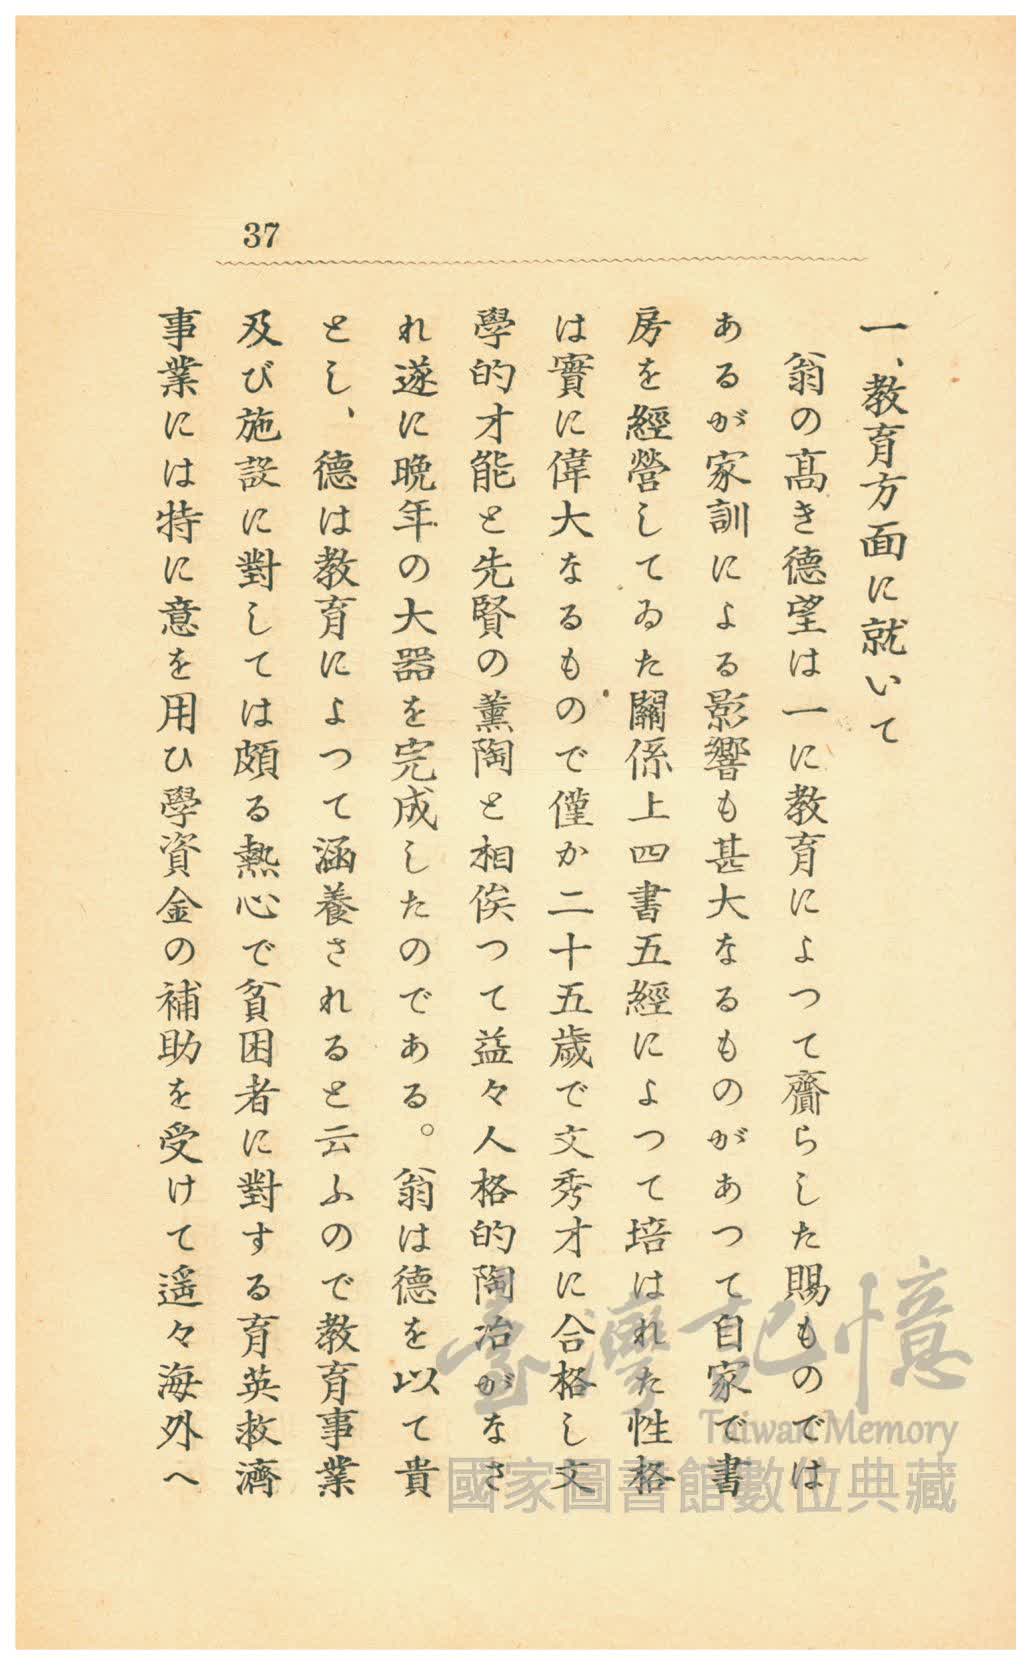 37
一、教育方面に就いて
翁の髙き德望は一に教育によつて齎らした賜ものでは
あるが家訓による影響も甚大なるものがあつて自家で書
房を經營してゐた關係上四書五經によつて培はれた性格
は實に偉大なるもので僅か二十五歲で文秀才に合格し文
學的才能と先賢の薰陶と相俟つて益々人格的陶冶がなさ
れ遂に晚年の大器を完成したのである。翁は德を以て貴
とし、德は教育によつて涵養されると云ふので教育事業
及び施設に對しては頗る熱心で貧困者に對する育英救濟
事業には特に意を用ひ學資金の補助を受けて遥々海外へ
臺灣記憶
Taiwan Memory
國家圖書館數位典藏